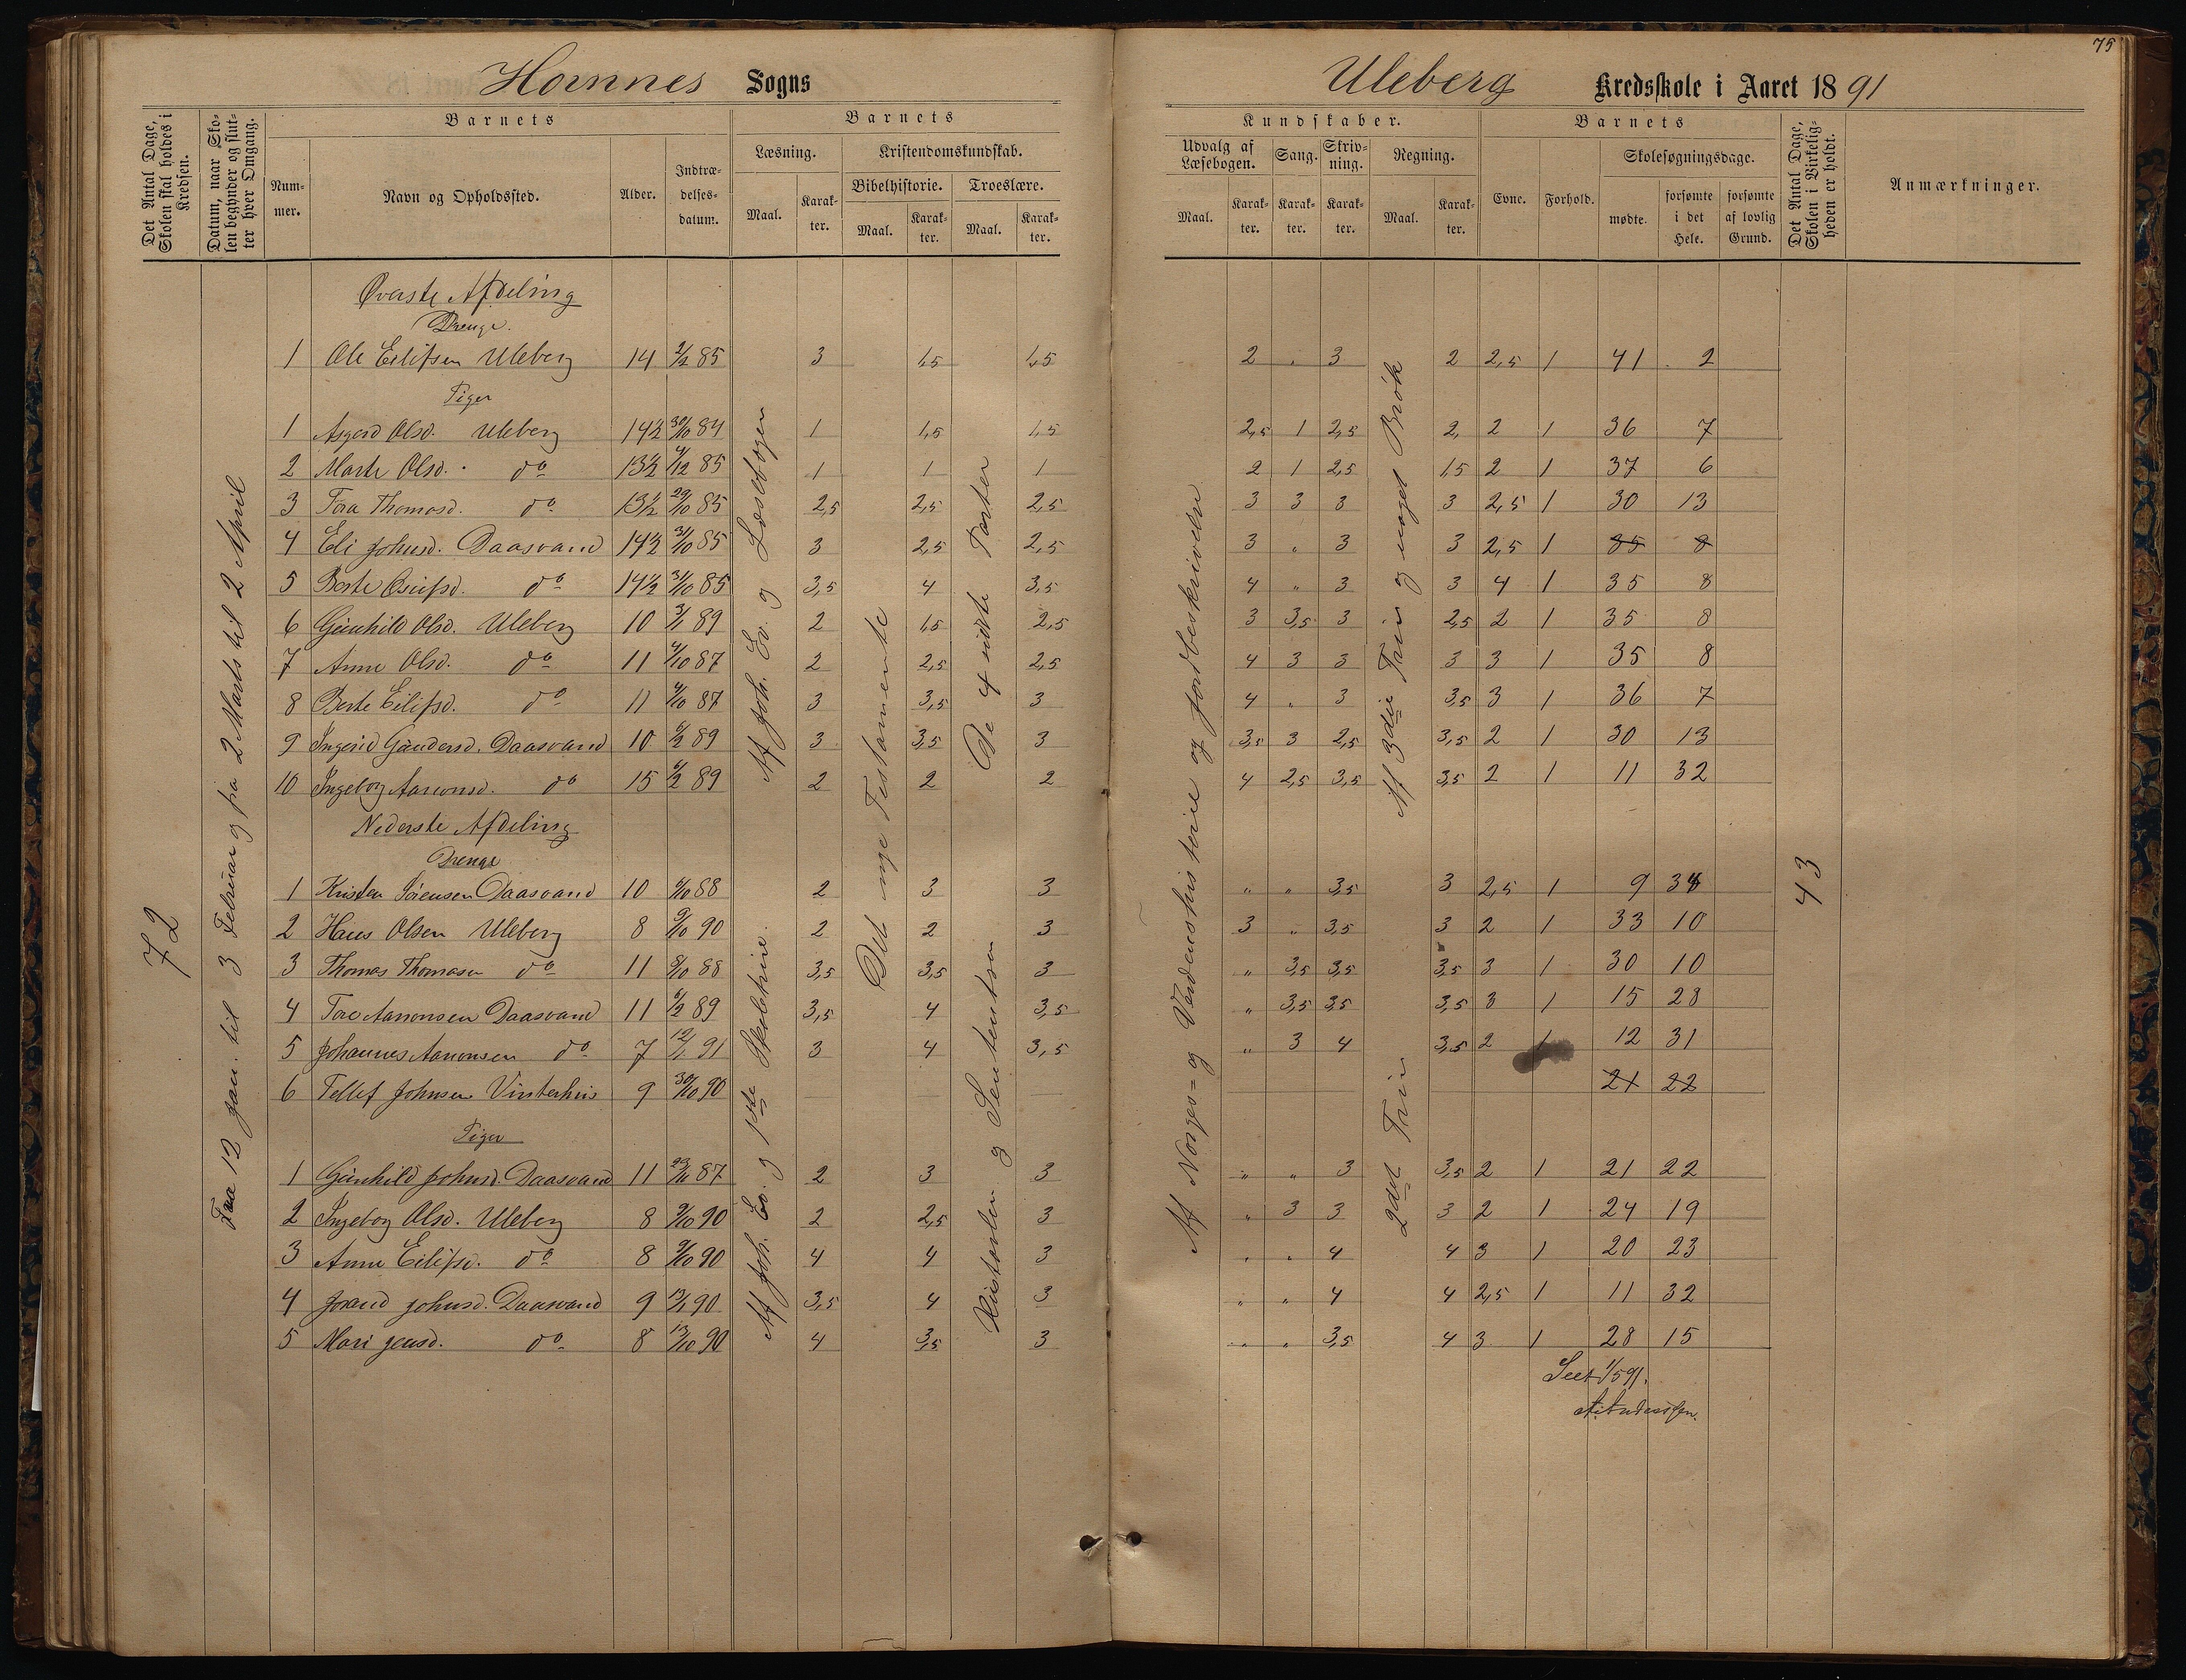 75
Hornnes Sogns
Uleberg Kredsskole i Aaret 1891
Det Antal Dage, Skolen skal holdes i Kredsen.
Datum, naar Skolen begynder og slutter hver Omgang.
Barnets
Nummer.
Navn og Opholdssted.
Alder.
Indtrædelsesdatum.
Barnets
Læsning.
Maal.
Karakter.
Kristendomskundskab.
Bibelhistorie.
Maal.
Karakter.
Troeslære.
Maal.
Karakter.
Kundskaber.
Udvalg af Læsebogen.
Maal.
Karakter.
Sang.
Karakter.
Skrivning.
Karakter.
Regning.
Maal.
Karakter.
Barnets
Evne.
Forhold.
Skolesøgningsdage.
mødte.
forsømte i det Hele.
forsømte af lovlig Grund.
Det Antal Dage, Skolen i Virkeligheden er holdt.
Anmærkninger.
72
Fra 12 Jan. til 3 Februar og fra 2 Marts til 2 April
Af Joh. Ev. og Læsebogen
Af Joh. Ev. og 1ste Skoletrin.
Det nye Testamente
De 4 sidste Parter
Historler og Sentenser
Af Norges- og Verdenshistorie og Jordbeskrivelse
Af 3die Trin og noget Brøk
2det Trin
43
Øverste Afdeling
Drenge.
1 Ole Eilifsen Uleberg 14 2/2 85 3 1,5 1,5 2 " 3 2 2,5 1 41 2
Piger
1 Asgerd Olsd. Uleberg 14½ 30/10 84 1 1,5 1,5 2,5 1 2,5 2, 2 1 36 7
2 Marte Olsd. do 13½ 4/12 85 1 1 1 2 1 2,5 1,5 2 1 37 6
3 Tora Thomasd. do 13½ 29/10 85 2,5 2,5 2,5 3 3 3 3 2,5 1 30 13
4 Eli Johnsd. Daasvand 14½ 31/10 85 3 2,5 2,5 3 " 3 3 2,5 1 35 8
5 Berte Osuifsd. do 14½ 31/10 85 3,5 4 3,5 4 " 3 3 4 1 35 8
6 Gunhild Olsd. Uleberg 10 3/1 89 2 1,5 2,5 3 3,5 3 2,5 2 1 35 8
7 Anne Olsd. do 11 4/10 87 2 2,5 2,5 4 3 3 3 3 1 35 8
8 Berte Eilifsd. do 11 4/10 87 3 3,5 3 4 " 3 3,5 3 1 36 7
9 Ingerid Gundersd. Daasvand 10 6/2 89 3 3,5 3 3,5 3 2,5 3,5 2 1 30 13
10 Ingeborg Aanonsd. do 15 6/2 89 2 2 2 4 2,5 3,5 3,5 2 1 11 32
Nederste Afdeling
Drenge
1 Kristen Sørensen Daasvand 10 9/10 88 2 3 3 " " 3,5 3 2,5 1 9 34
2 Hans Olsen Uleberg 8 9/10 90 2 2 3 3 " 3,5 3 2 1 33 10
3 Thomas Thomasen do 11 8/10 88 3,5 3,5 3 " 3,5 3,5 3,5 3 1 30 10
4 Tore Aanonsen Daasvand 11 6/2 89 3,5 4 3,5 " 3,5 3,5 3,5 3 1 15 28
5 Johannes Aanonsen do 7 12/1 91 3 4 3,5 " 3 4 3,5 2 1 12 31
6 Tellef Johnsen Vinterhus 9 30/10 90 21 22
Piger
1 Gunhild Johnsd. Daasvand 11 23/11 87 2 3 3 " " 3 3,5 2 1 21 22
2 Ingeborg Olsd. Uleberg 8 9/10 90 2 2,5 3 " 3 3 3 2 1 24 19
3 Anne Eilifsd. do 8 9/10 90 4 4 3 " " 4 4 3 1 20 23
4 Joraud Johnsd. Daasvand 9 13/1 90 3,5 4 3 " " 4 4 2,5 1 11 32
5 Mari Jensd. do 8 13/10 90 4 3,5 3 " " 3,5 4 3 1 28 15
Seet 1/5 91.